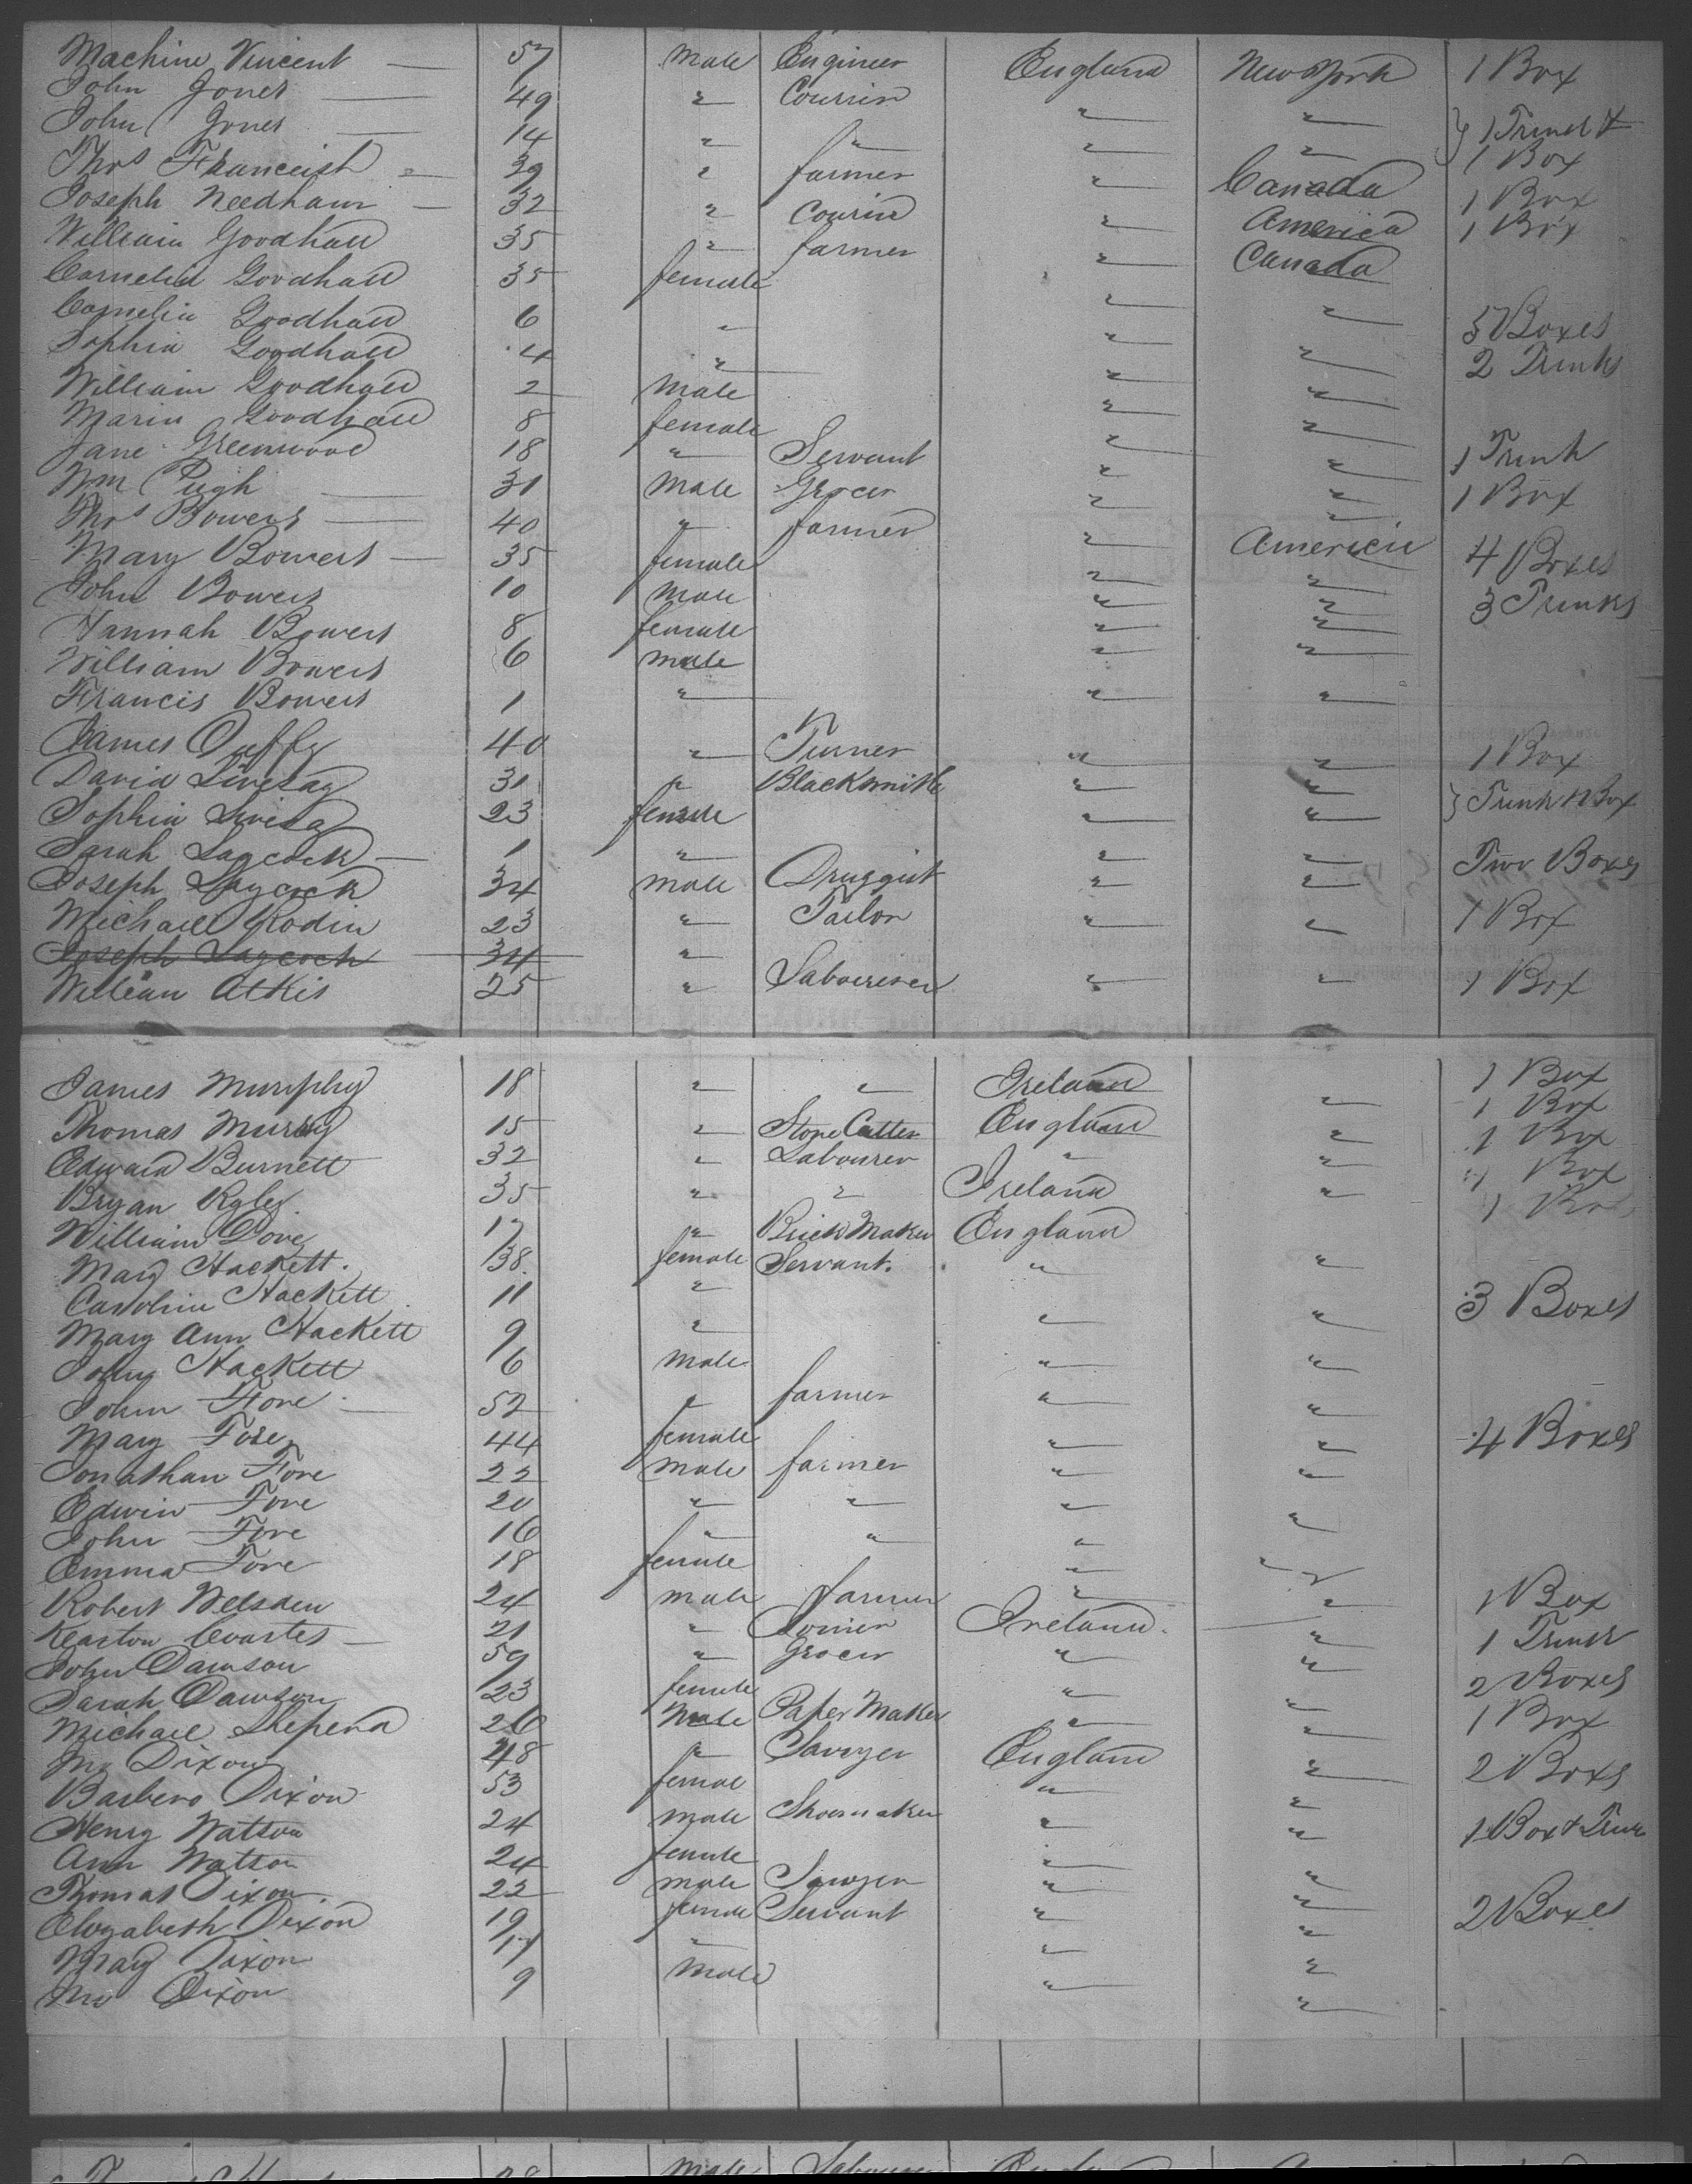 Machine Vincent 57 male Engineer England New York 1 Box
John Jones 49 " Courrier " "
John Jones 14 " " " " } 1 Trunk & 1 Box
Thos 39 " farmer " Canada 1 Box
Joseph Needham 32 " " America 1 Box
William Goodhall 35 " farmer " Canada
Cornelia Goodhall 35 female " "
Cornelia Goodhall 6 " " " 5 Boxes
Sophia Goodhall 4 " " " 2 Trunks
William Goodhall 2 male " "
Maria Goodhall 8 female " "
Jane Greenwood 18 " Servant " " 1 Trunk
Wm Pugh 31 male Grocer " " 1 Box
Thos Bowers 40 " farmer " "
Mary Bowers 35 female " America 4 Boxes
John Bowers 10 male " " 3 Trunks
Hannah Bowers 8 female " "
William Bowers 6 male " "
Francis Bowers 1 " " "
James Duffy 40 " Turner " " 1 Box
David Livesay 31 " Blacksmith " "
Sophia 23 female " " } Trunk Box
Sarah Laycock 1 " " " Two Boxes
Joseph Laycock 34 male Druggist " "
Michael Rodin 23 " Tailor " " 1 Box
Joseph Laycock 34 "
William Atkis 25 " " " 1 Box
James Murphy 18 " " Ireland " 1 Box
Thomas 15 " Stone Cutter England " 1 Box
Edward Burnett 32 " Labourer " " 1 Box
Bryan 35 " " Ireland " 1 Box
William Dove 17 " Brick Maker England 1 Box
Mary Hackett. 38. female Servant. " "
Caroline Hackett 11 " 3 Boxes
Mary Ann Hackett 9 " " "
John Hackett 6 male " "
John Fore 52 " farmer " "
Mary Fore 44 female " " 4 Boxes
Jonathan Fore 22 male farmer " "
Edwin Fore 20 " " "
John Fore 16 " " " "
Emma Fore 18 female " "
Robert 24 male farmer " " 1 Box
21 " Joiner Ireland. " 1 Trunk
John Dawson 59 " Grocer " " 2 Boxes
Sarah Dawson 23 female " "
Michael 26 male Paper Maker " " 1 Box
Dixon 48 " Sawyer England " 2 Boxes
Dixon 53 female " "
Henry Watson 24 male Shoemaker " " 1 Box & Trunk
Ann Watson 24 female " "
Thomas Dixon 22 male Sawyer " "
Elizabeth Dixon 19 female Servant " " 2 Boxes
Mary Dixon 17 " " "
Dixon 9 male " "
male Labourer